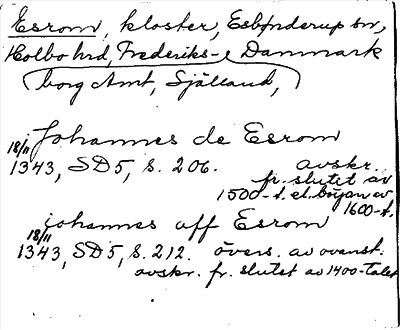 Esrom, kloster, Esbønderup sn,
Holbo hrd, Frederiks- Danmark
borg Amt, Sjælland,
Johannes de Esrom
18/11 1343, SD5, s. 206. avskr.
fr. slutet av
1500-t. el. början av
1600-t.
johannes aff Esrom
18/11 1343, SD5, s. 212. övers. av ovanst.
avskr. fr. slutet av 1400-talet